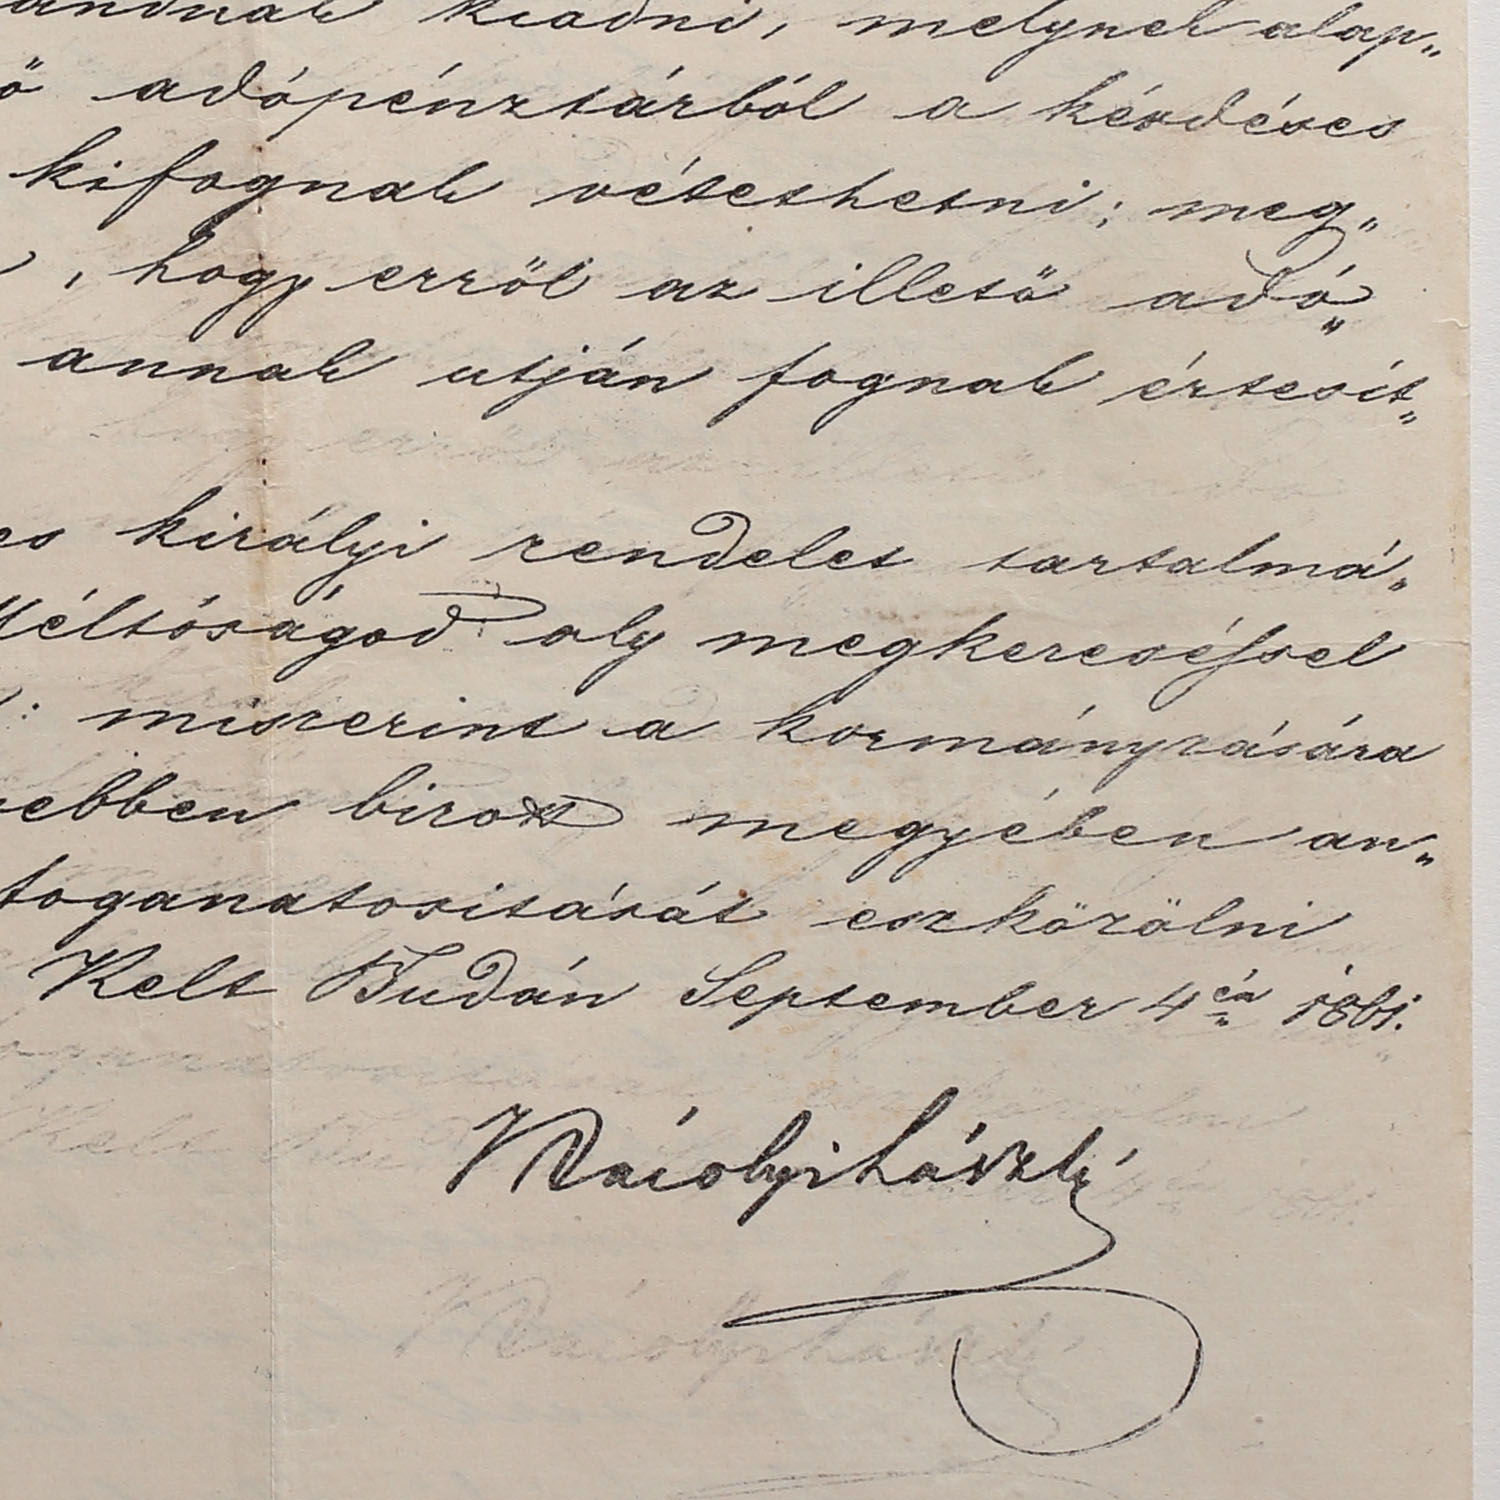 kiadni, melynek alap„
ő adópénztárból a kérdéses
kifognak vétethetni; meg„
, hogy erről az illető adó„
annak utján fognak értesít„
es királyi rendelet tartalmá„
Méltóságod oly megkereséssel
: miszerint a kormányzására
ebben birott megyében an„
foganatositását eszközölni
Kelt Budán September 4én 1861.